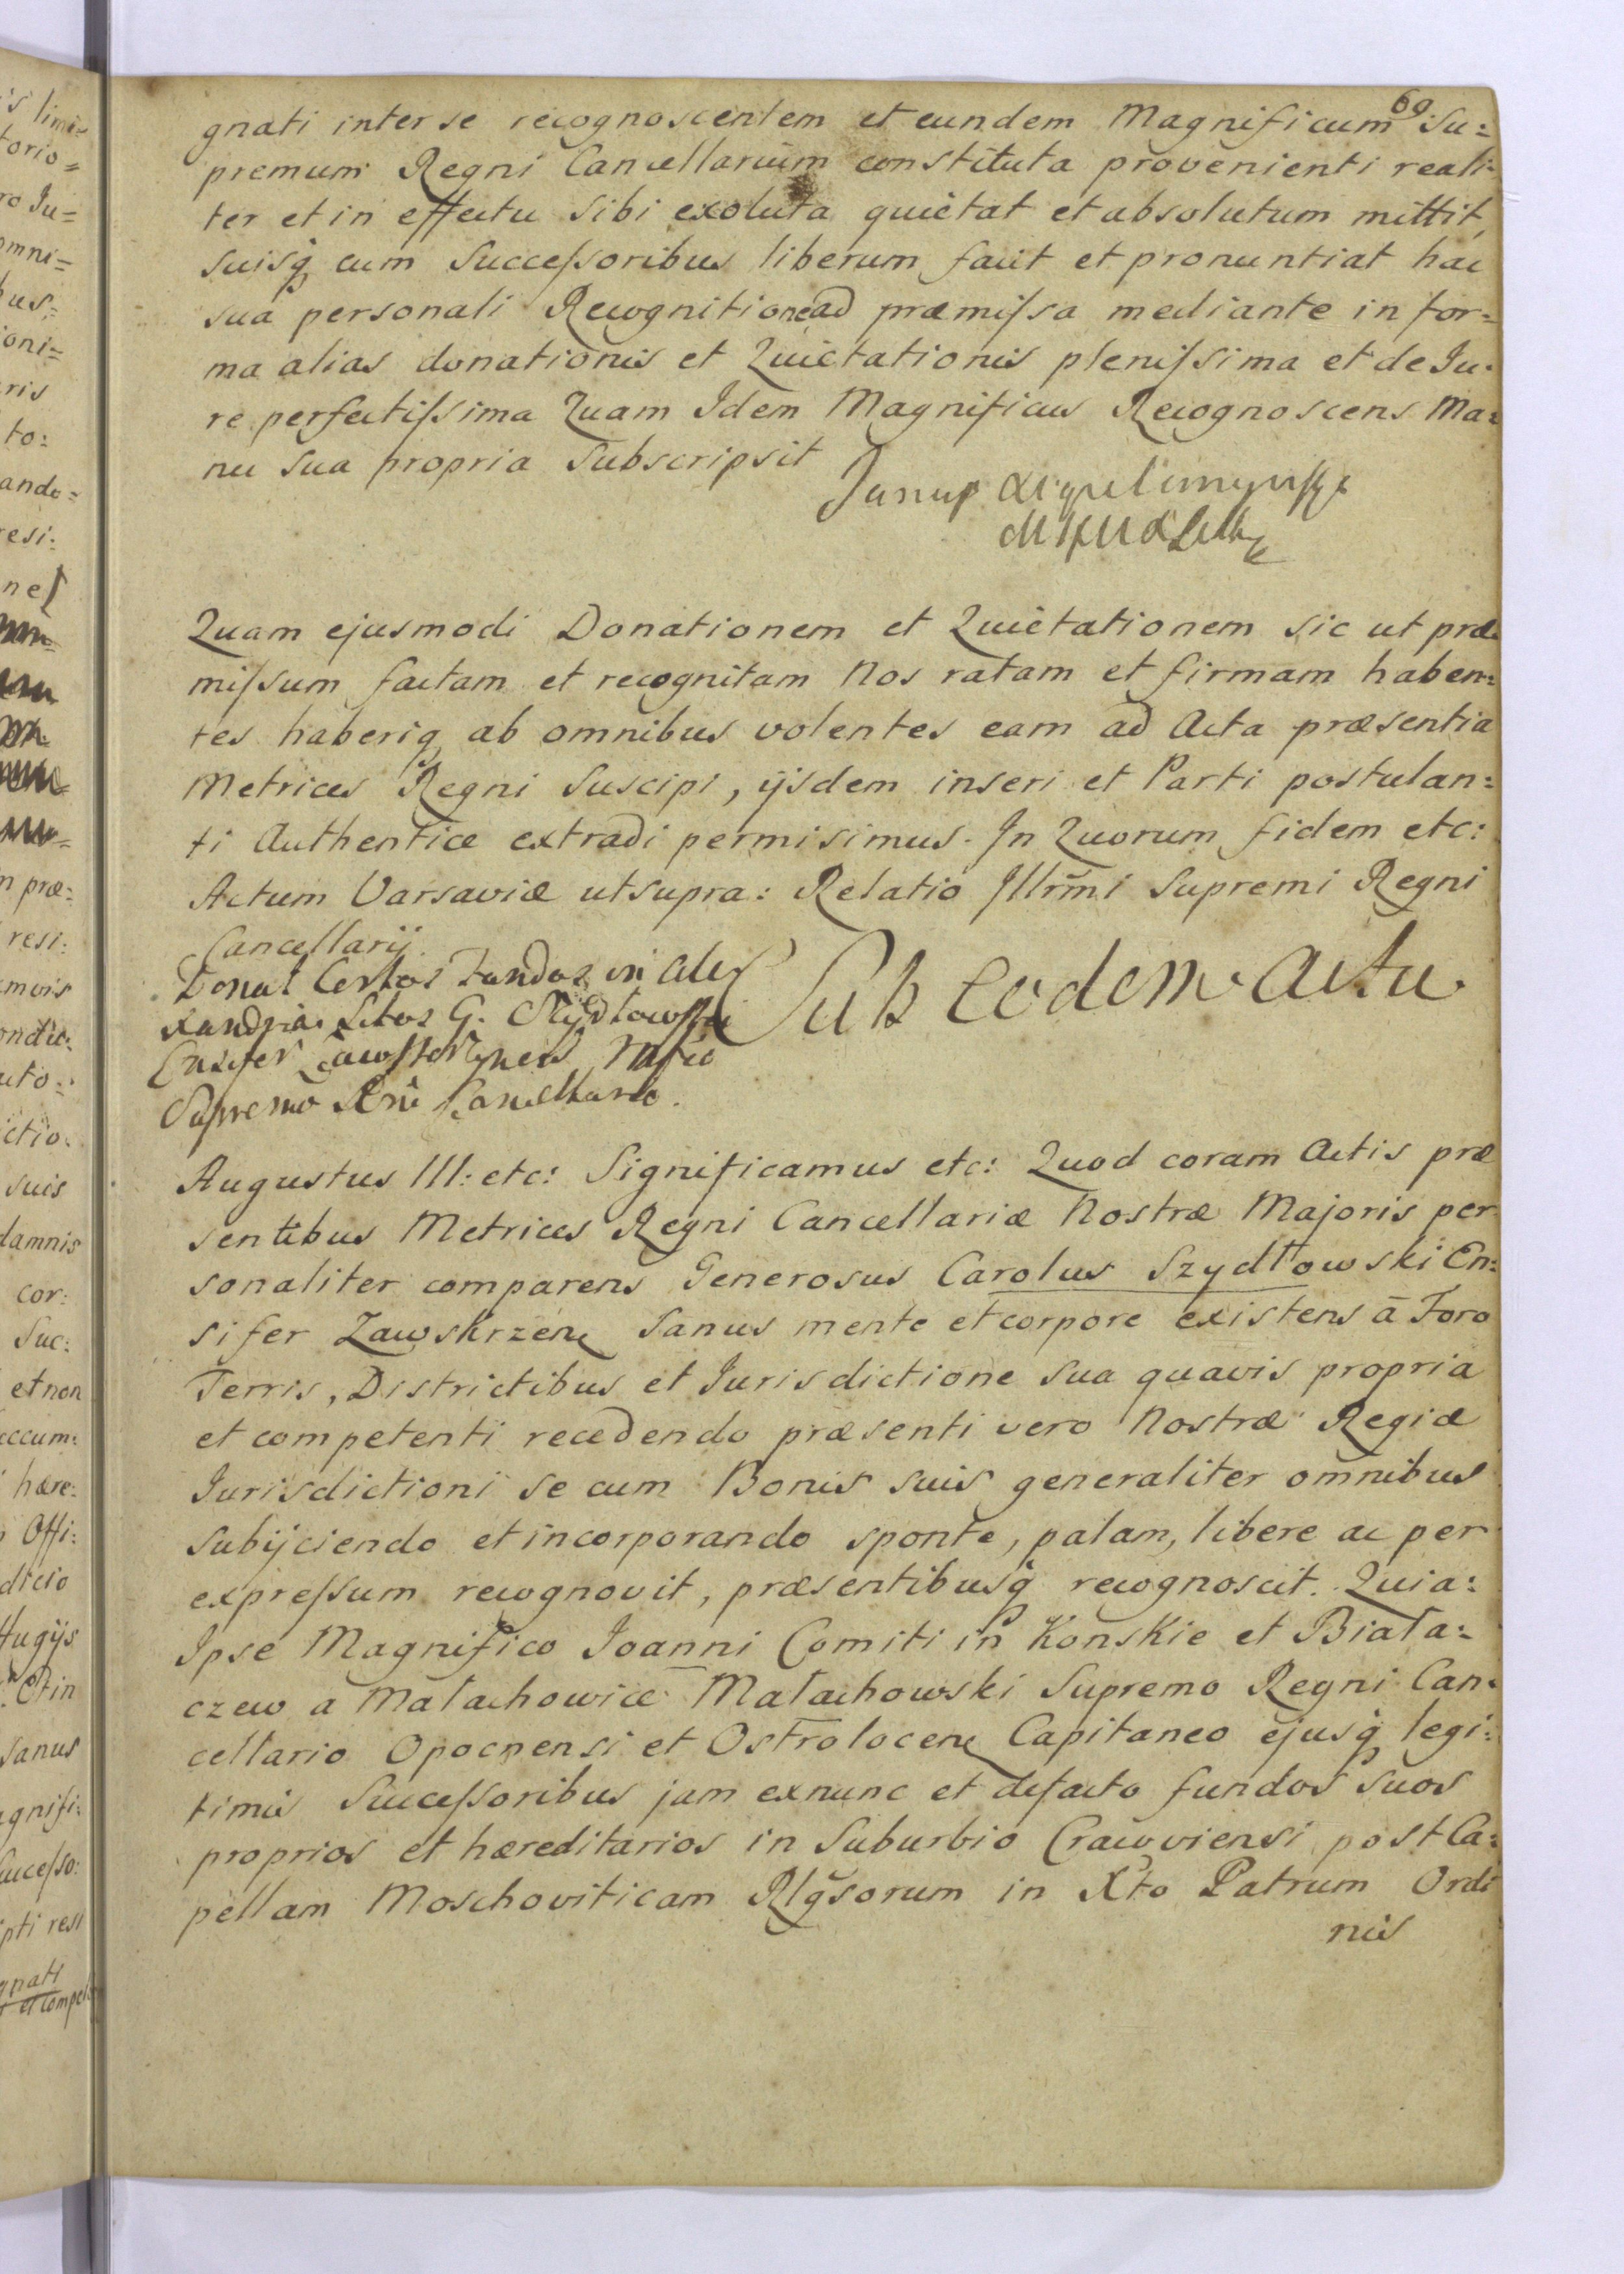 69.
gnati inter se recognoscentem et eundem Magnificum Su=
premum Regni Cancellarium constituta provenienti reali=
ter et in effectu sibi exoluta quietat et absolutum mittit,
suisq̃ cum Successoribus liberum facit et pronuntiat hac
sua personali Recognitione ad præmissa mediante in for=
ma alias donationis et Quietationis plenissima et de Ju=
re perfectissima Quam Idem Magnificus Recognoscens Ma=
nu sua propria subscripsit
Quam ejusmodi Donationem et Quietationem sic ut præ=
missum factam et recognitam Nos ratam et firmam haben=
tes haberiq̃ ab omnibus volentes eam ad Acta præsentia
Metrices Regni Suscipi, ijsdem inseri et Parti postulan=
ti Authentice extradi permisimus. In Quorum fidem etc:
Actum Varsaviæ ut supra: Relatio Illr̃mi Supremi Regni
Cancellarij.
Donat Certos Fundos in Alex
xandria sitos G. Szydłowski
Ensifer
Supremo Rñi Cancellario.
Sub eodem Actu
Augustus III: etc: Significamus etc: Quod coram Actis præ
sentibus Metrices Regni Cancellariæ Nostræ Majoris per
sonaliter comparens Generosus Carolus Szydłowski En=
sifer Zawskrzen̄ Sanus mente et corpore existens ā Foro
Terris, Districtibus et Jurisdictione sua quavis propria
et competenti recedendo præsenti vero Nostræ Regiæ
Jurisdictioni se cum Bonis suis generaliter omnibus
subijciendo et incorporando sponte, palam, libere ac per
expressum recognovit, præsentibusq̃ recognoscit. Quia:
Ipse Magnifico Joanni Comiti in Konskie et Biała=
czew a Małachowice Małachowski Supremo Regni Can=
cellario Opocnensi et Ostrołocen̄ Capitaneo ejusq̃ legi=
timis Successoribus jam exnunc et defacto fundos suos
proprios et hæreditarios in Suburbio Cracoviensi post Ca=
pellam Moschoviticam Rlg̃sorum in Xto Patrum Ordi
nis